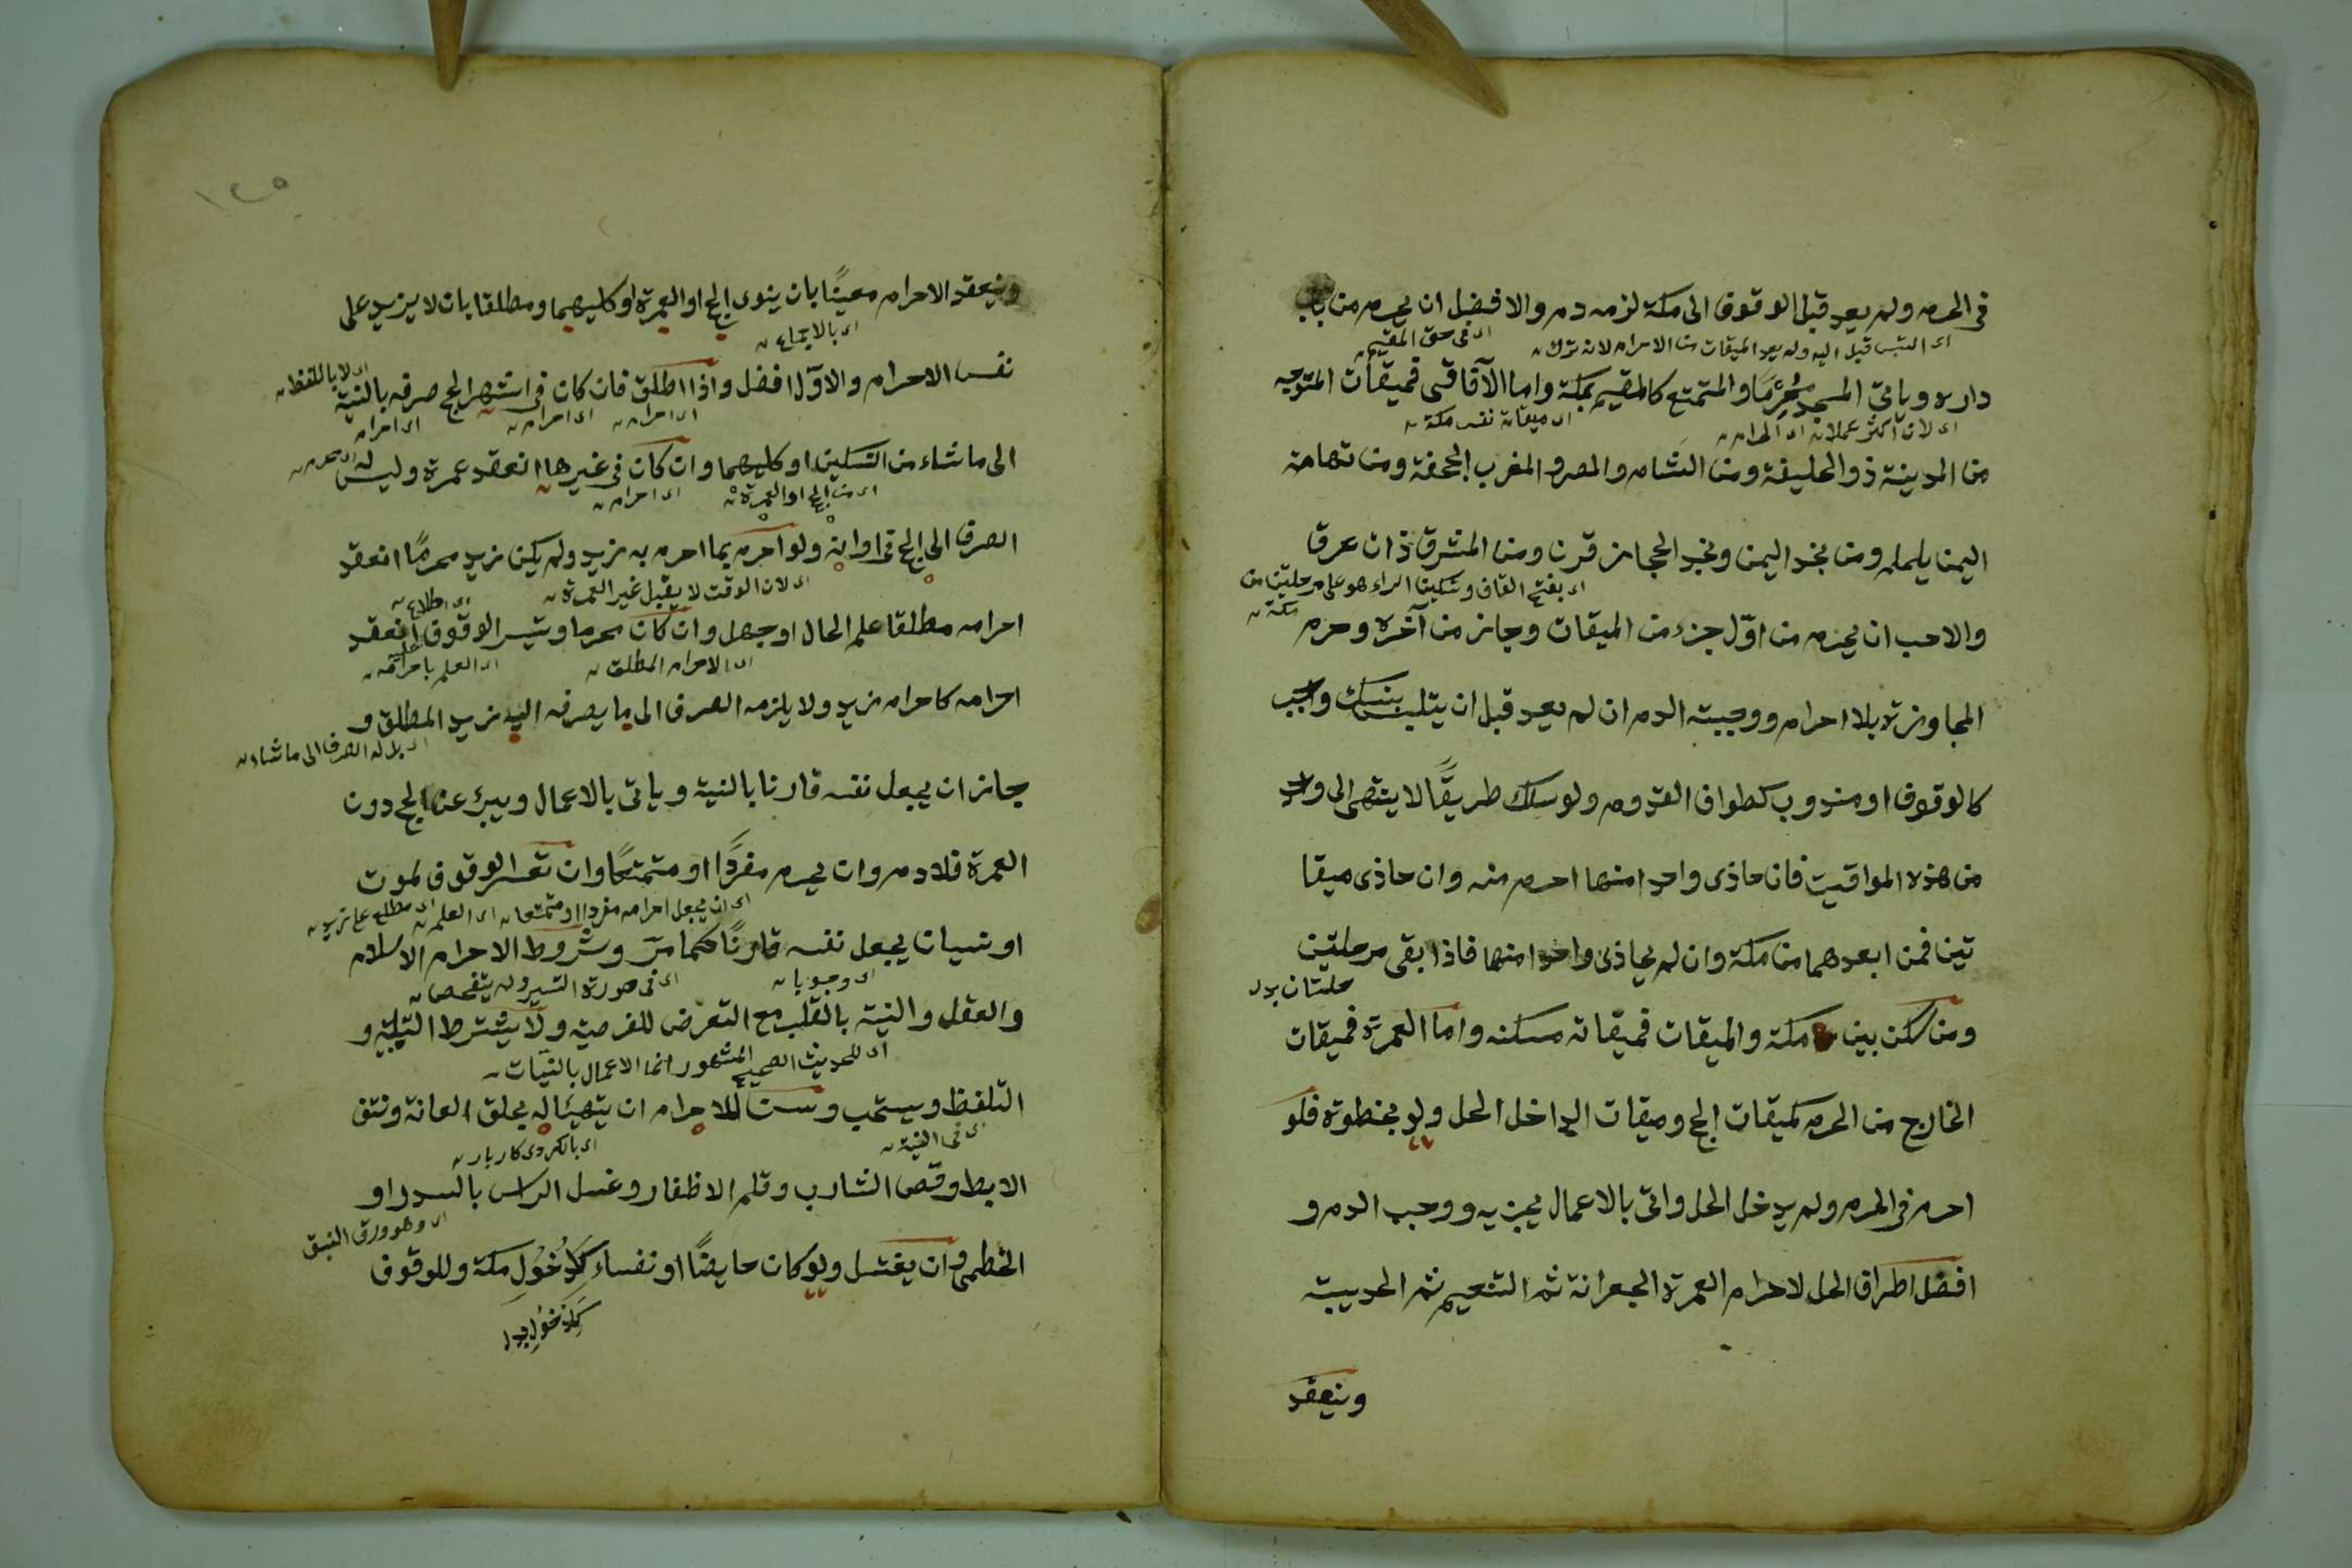 في الحرم ولم يعد قبل الوقوف الى مكة لزمه دم والافضل ان يحرم من باب
اى في حق المقيم
داره وياتى المسجد محرما والمتمتع كالمقيم بمكة واما الآفاقى فميقات المتوجه
اى ميقاته نفس مكة
من المدينة ذو الحليفة ومن الشام والمصر والمغرب الجحفة ومن تهامة
اليمن يلملم ومن نجد اليمن ونجد الحجاز قرن ومن المشرق ذات عرق
اى بفتح القاف وتسكين الراء هو على مرحلتين من مكة
والاحب ان يحرم من اوّل جزء من الميقات وجاز من آخره وحرم
المجاوزة بلا احرام ووجبت الدم ان لم يعد قبل ان يتلبس بنسك واجب
كالوقوف او مندوب كطواف القدوم ولو سلك طريقًا لا ينتهى الى واحد
من هذه المواقيت فان حاذى واحدا منها احرم منه وان حاذى ميقا
تين فمن ابعدهما من مكة وان لم يحاذى واحدا منها فاذا بقى مرحلتين
ومن سكن بين مكة والميقات فميقاته مسكنه واما العمرة فميقات
الخارج من الحرم كميقات الحج وميقات الداخل الحل ولو بخطوة فلو
احرم في الحرم ولم يدخل الحل واتى بالاعمال يجزيه ووجب الدم و
افضل اطراف الحل لاحرام العمرة الجعرانة ثم التنعيم ثم الحديبية
وينعقد
١٢٥
وينعقد الاحرام معينًا بان ينوى الحج او العمرة او كليهما ومطلقا بان لا يزيد على
نفس الاحرام والاوّل افضل واذا اطلق فان كان في اشهر الحج صرفه بالنية
اى لا باللفظ
اى احرامه
اى احرامه
الى ما شاء من النسكين او كليهما وان كان في غيرها انعقد عمرة وليس له
اى من الحج او العمرة
اى احرامه
الصرف الى الحج في اوانه ولو احرم بما احرم به زيد ولم يكن زيد محرمًا انعقد
اى لان الوقت لا يقبل غير العمرة
احرامه مطلقا علم الحال او جهل وان كان محرما وتيسر الوقوف انعقد
اى الاحرام المطلق
اى العلم باحرامه
احرامه كاحرام زيد ولا يلزمه الصرف الى ما يصرفه اليه زيد المطلق و
اى بل له الصرف الى ما شاء
جاز ان يجعل نفسه قارنا بالنية وياتى بالاعمال ويبرئ عن الحج دون
العمرة فلا دم وان يحرم مفردًا او متمتعًا وان تعسر الوقوف لموت
اى ان يجعل احرامه مفردا او متمتعا
او نسيان يجعل نفسه قارنًا كما مرّ وشروط الاحرام الاسلام
اى وجوبا
والعقل والنية بالقلب مع التعرض للفرضية ولا يشترط التلبية و
اى للحديث الصحيح المشهور انما الاعمال بالنيّات
التلفظ ويستحب وسن للاحرام ان يتهيا له بحلق العانة ونتف
اى في النية
الابط وقصّ الشارب وقلم الاظفار وغسل الراس بالسدر او
اى وهو ورق النبق
الخطمى وان يغتسل ولو كان حايضًا او نفساء كدُخُولِ مكة وللوقوف
كدخول بدل